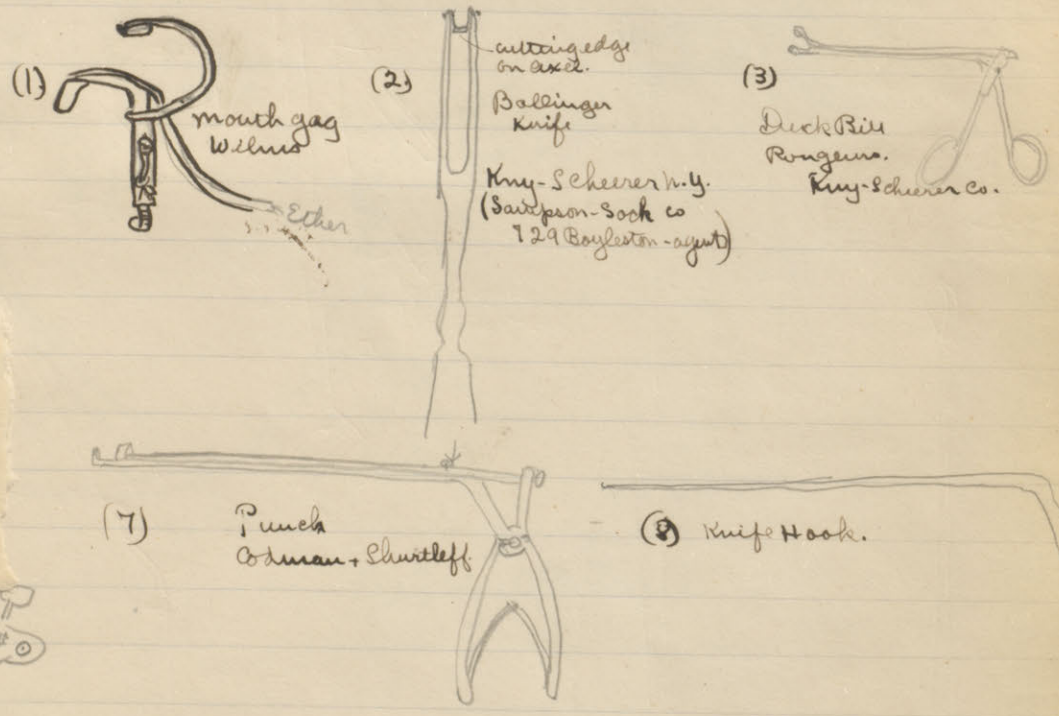 (1)
mouth gag
Wilms
Ether
(2)
cutting edge
on axel.
Ballinger
Knife
Kny-Scheerer N.Y.
(Sampson-Soch co
729 Boyleston-agent)
(3)
Duck Bill
Rongeurs.
Kny-Scheerer Co.
(7)
Punch
Codman + Shurtleff
(8) Knife Hook.